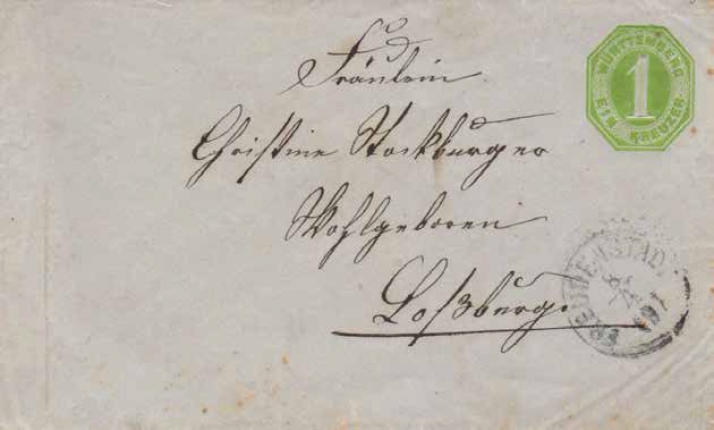 WÜRTTEMBERG
1
EIN KREUZER
Fräulein
Christine Stockburger
Wohlgeboren
Loßburg.
FREUDENSTADT